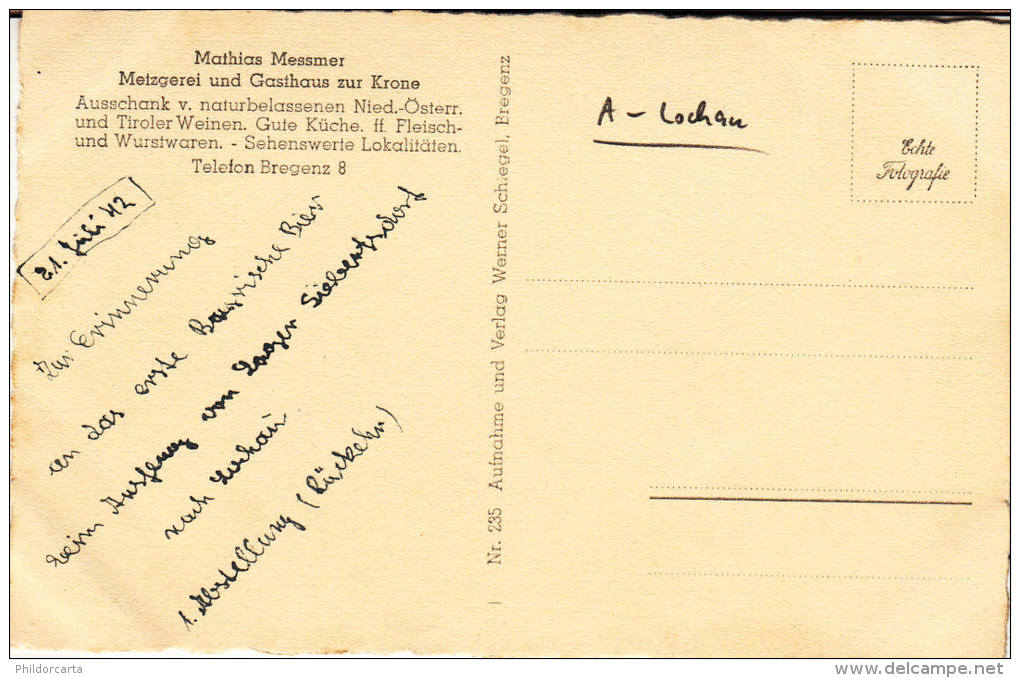 Mathias Messmer
Metzgerei und Gasthaus zur Krone
Ausschank v. naturbelassenen Nied.-Österr.
und Tiroler Weinen. Gute Küche. ff. Fleisch-
und Wurstwaren. - Sehenswerte Lokalitäten.
Telefon Bregenz 8
21. Juli 42
Zur Erinnerung
an das erste Bayrische Bier
beim von
nach Lochau
1. Abstellung (Rückkehr)
Nr. 235 Aufnahme und Verlag Werner Schlegel, Bregenz
A - Lochau
Echte
Fotografie
Phildorcarta
delcampe.net